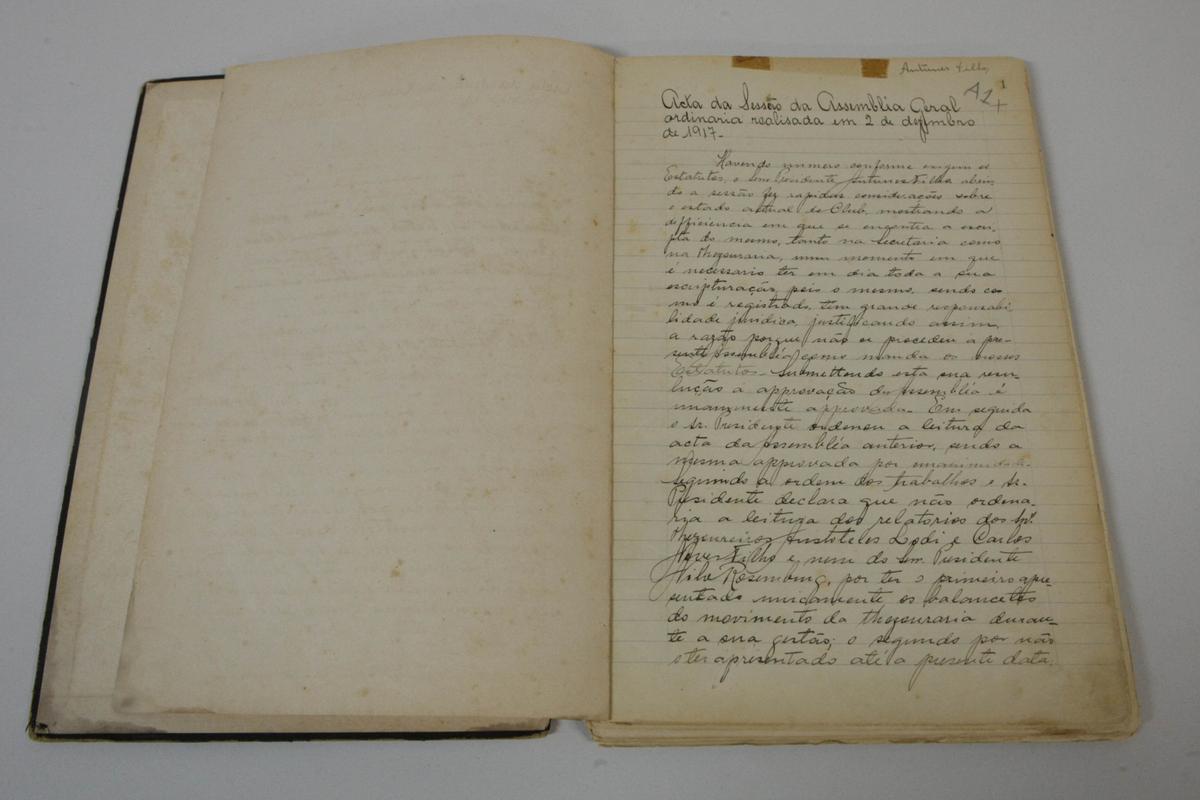 Antunes Filho
1
Acta da Sessão da Assemblia Geral
ordinaria realisada em 2 de dezembro
de 1917-
Havendo numero conforme exigem os
Estatutos, o Snr Presidente Antunes Filho abrin,
do a sessão fez rapidas considerações sobre
o estado actual do Club, mostrando a
defficiencia em que se encontra a escri,
pta do mesmo, tanto na secretaria como
na thezouraria, num momento em que
é necessario ter em dia toda a sua
escripturação, pois o mesmo, sendo co
mo é registrado, tem grande responsabi,
lidade juridica, justificando assim,
a razão porque não se procedeu a pre-
sente Assembléa como manda os nossos
Estatutos- Submettendo esta sua reso-
lução a approvação da Assembléa é
unanimente approvada- Em seguida
o Sr. Presidente ordenou a leitura da
acta da Assembléa anterior, sendo a
mesma approvada por unanimidade-
Seguindo a ordem dos trabalhos o Sr.
Presidente declara que não ordena,
ria a leitura dos relatorios dos Snrs
thezoureiros Aristoteles Lodi e Carlos
Neves Filho e nem do Snr. Presidente
Nilo Rosemburg, por ter o primeiro apre-
sentado unicamente os balancetes
do movimento da thezouraria duran-
te a sua gestão; o segundo por não
o ter apresentado até a presente data.